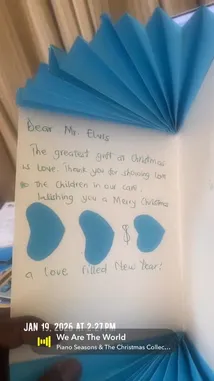 Dear Mr. Elvis
The greatest gift at Christmas
is Love. Thank you for showing love
to the children in our care.
Wishing you a Merry Christmas
&
a Love filled New Year!
JAN 19, 2026 AT 2:27PM
We Are The World
Piano Seasons & The Christmas Collec...